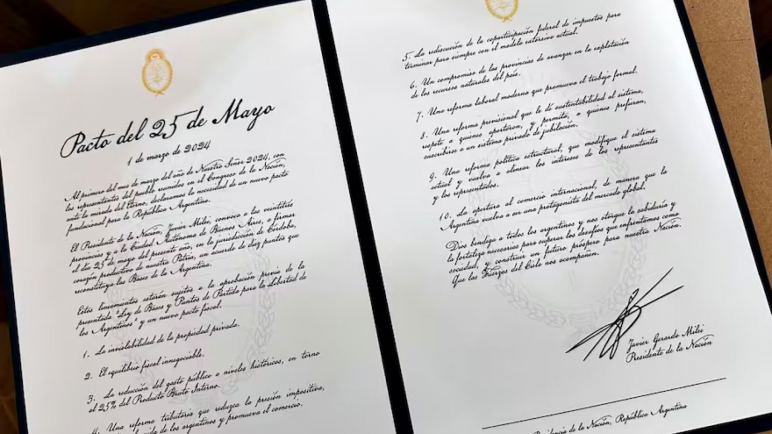 Pacto del 25 de Mayo
1 de marzo de 2024
Al primer día del mes de marzo del año de Nuestro Señor 2024, con
los representantes del pueblo reunidos en el Congreso de la Nación,
ante la mirada del Eterno, declaramos la necesidad de un nuevo pacto
fundacional para la República Argentina.
El Presidente de la Nación, Javier Milei, convoca a las veintitrés
provincias y a la Ciudad Autónoma de Buenos Aires, a firmar
el día 25 de mayo del presente año, en la jurisdicción de Córdoba,
corazón productivo de nuestra Patria, un acuerdo de diez puntos que
reconstituya las Bases de la Argentina.
Estos lineamientos estarán sujetos a la aprobación previa de la
presentada "Ley de Bases y Puntos de Partida para la Libertad de
los Argentinos" y un nuevo pacto fiscal.
1. La inviolabilidad de la propiedad privada.
2. El equilibrio fiscal innegociable.
3. La reducción del gasto público a niveles históricos, en torno
al 25% del Producto Bruto Interno.
4. Una reforma tributaria que reduzca la presión impositiva,
vida de los argentinos y promueva el comercio.
5. La rediscusión de la coparticipación federal de impuestos para
terminar para siempre con el modelo extorsivo actual.
6. Un compromiso de las provincias de avanzar en la explotación
de los recursos naturales del país.
7. Una reforma laboral moderna que promueva el trabajo formal.
8. Una reforma previsional que le dé sustentabilidad al sistema,
respete a quienes aportaron, y permita, a quienes prefieran,
suscribirse a un sistema privado de jubilación.
9. Una reforma política estructural, que modifique el sistema
actual y vuelva a alinear los intereses de los representantes
y los representados.
10. La apertura al comercio internacional, de manera que la
Argentina vuelva a ser una protagonista del mercado global.
Dios bendiga a todos los argentinos y nos otorgue la sabiduría y
la fortaleza necesarias para superar los desafíos que enfrentamos como
sociedad, y construir un futuro próspero para nuestra Nación.
Que las Fuerzas del Cielo nos acompañen.
Javier Gerardo Milei
Presidente de la Nación
Presidencia de la Nación, República Argentina